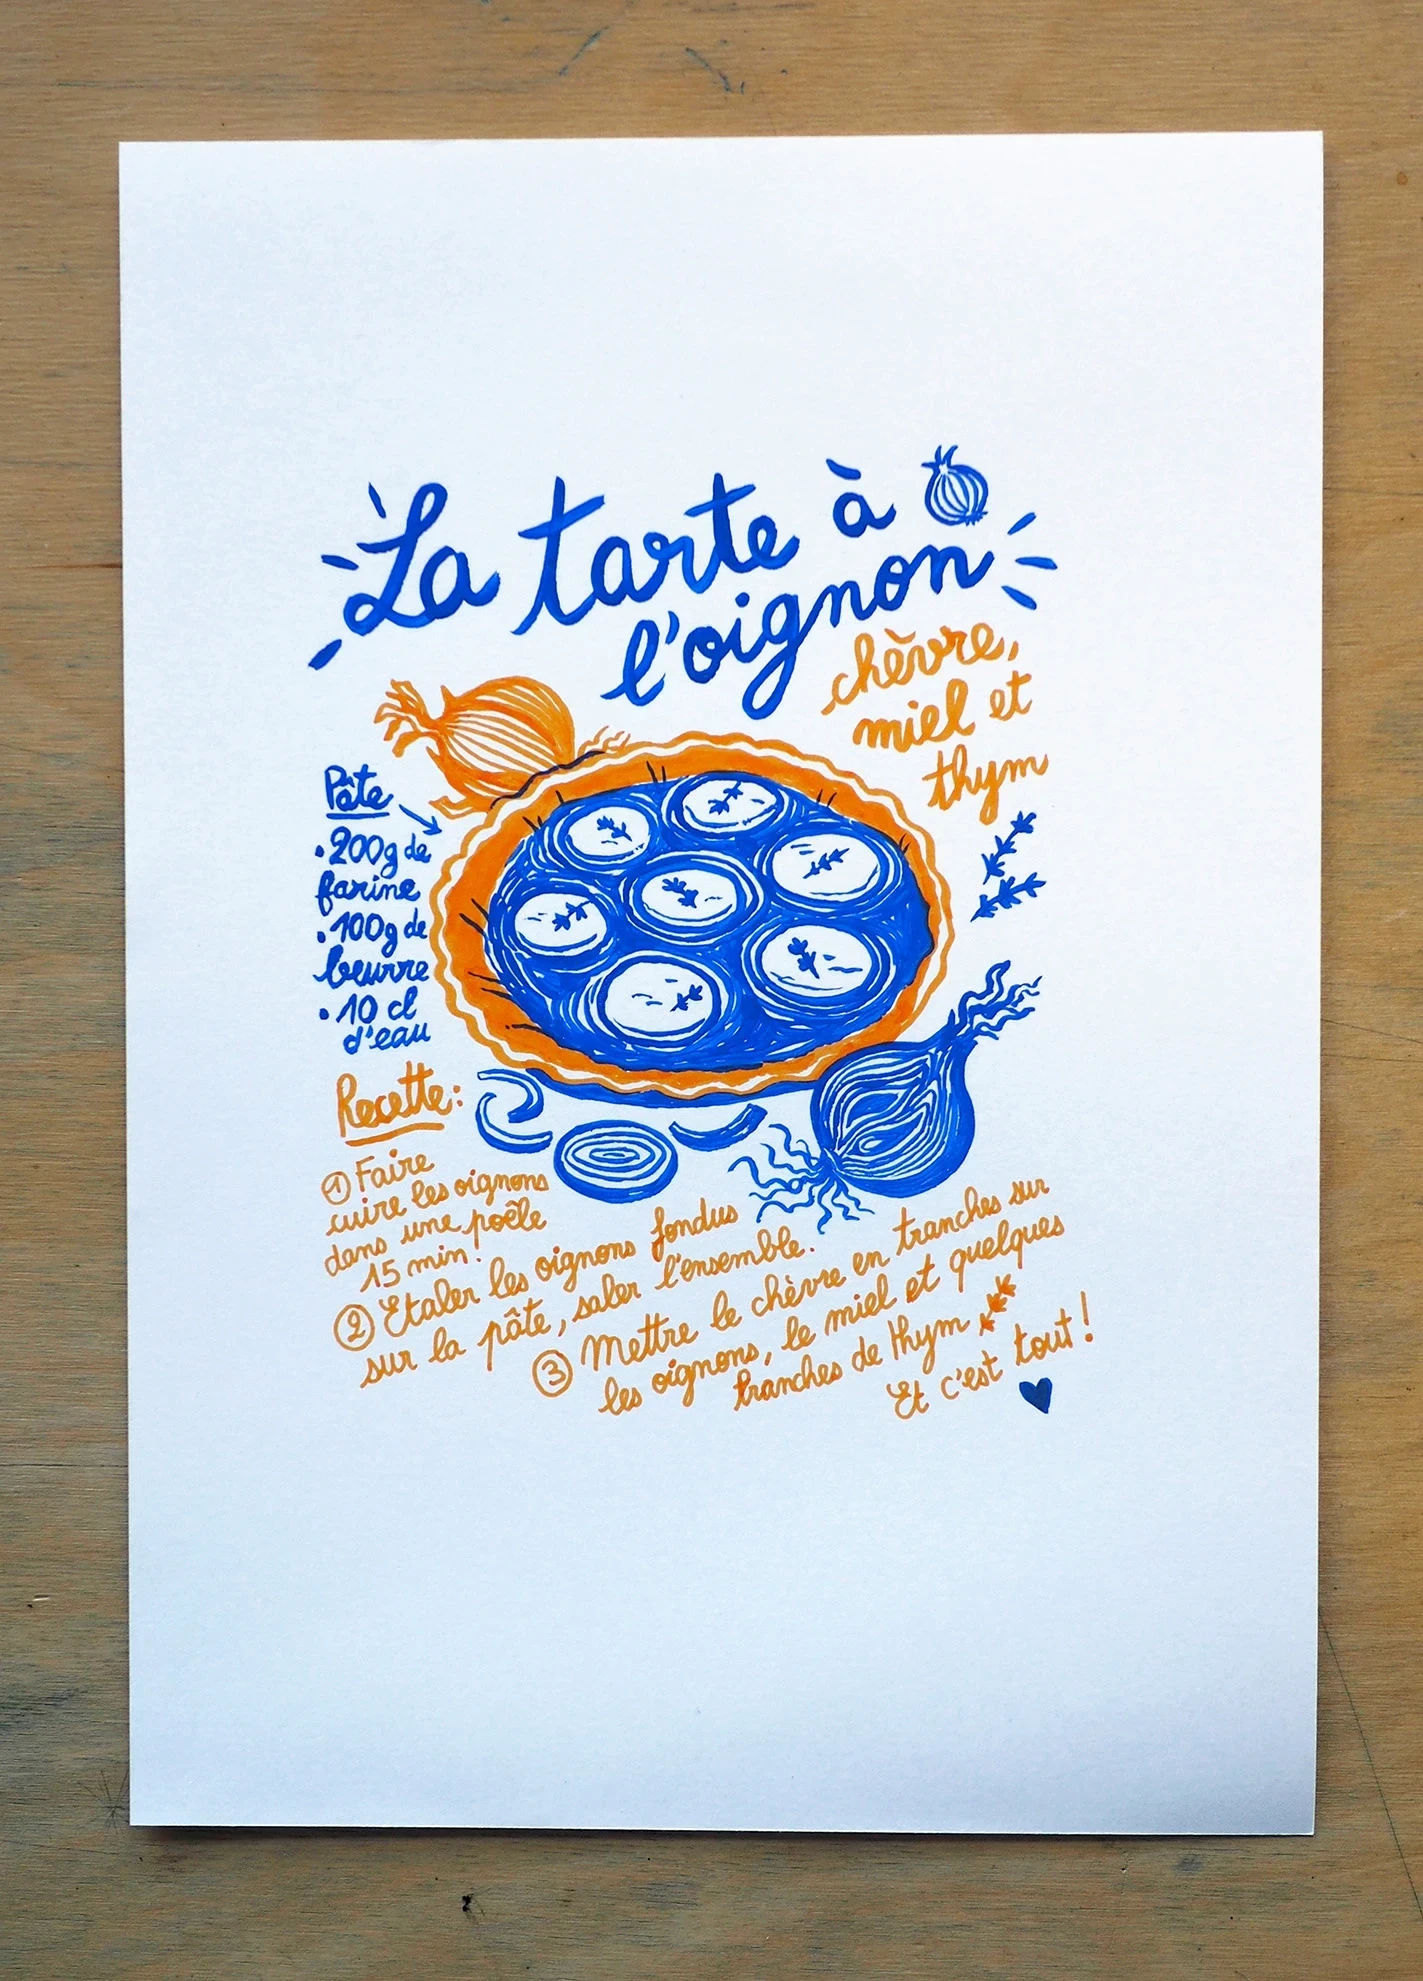 La tarte à
l'oignon
chèvre,
miel et
thym
Pâte
• 200g de
farine
• 100g de
beurre
• 10 cl
d'eau
Recette:
① Faire
cuire les oignons
dans une poêle
15 min.
② Etaler les oignons fondus
sur la pâte, saler l'ensemble.
③ Mettre le chèvre en tranches sur
les oignons, le miel et quelques
branches de thym
Et c'est tout!